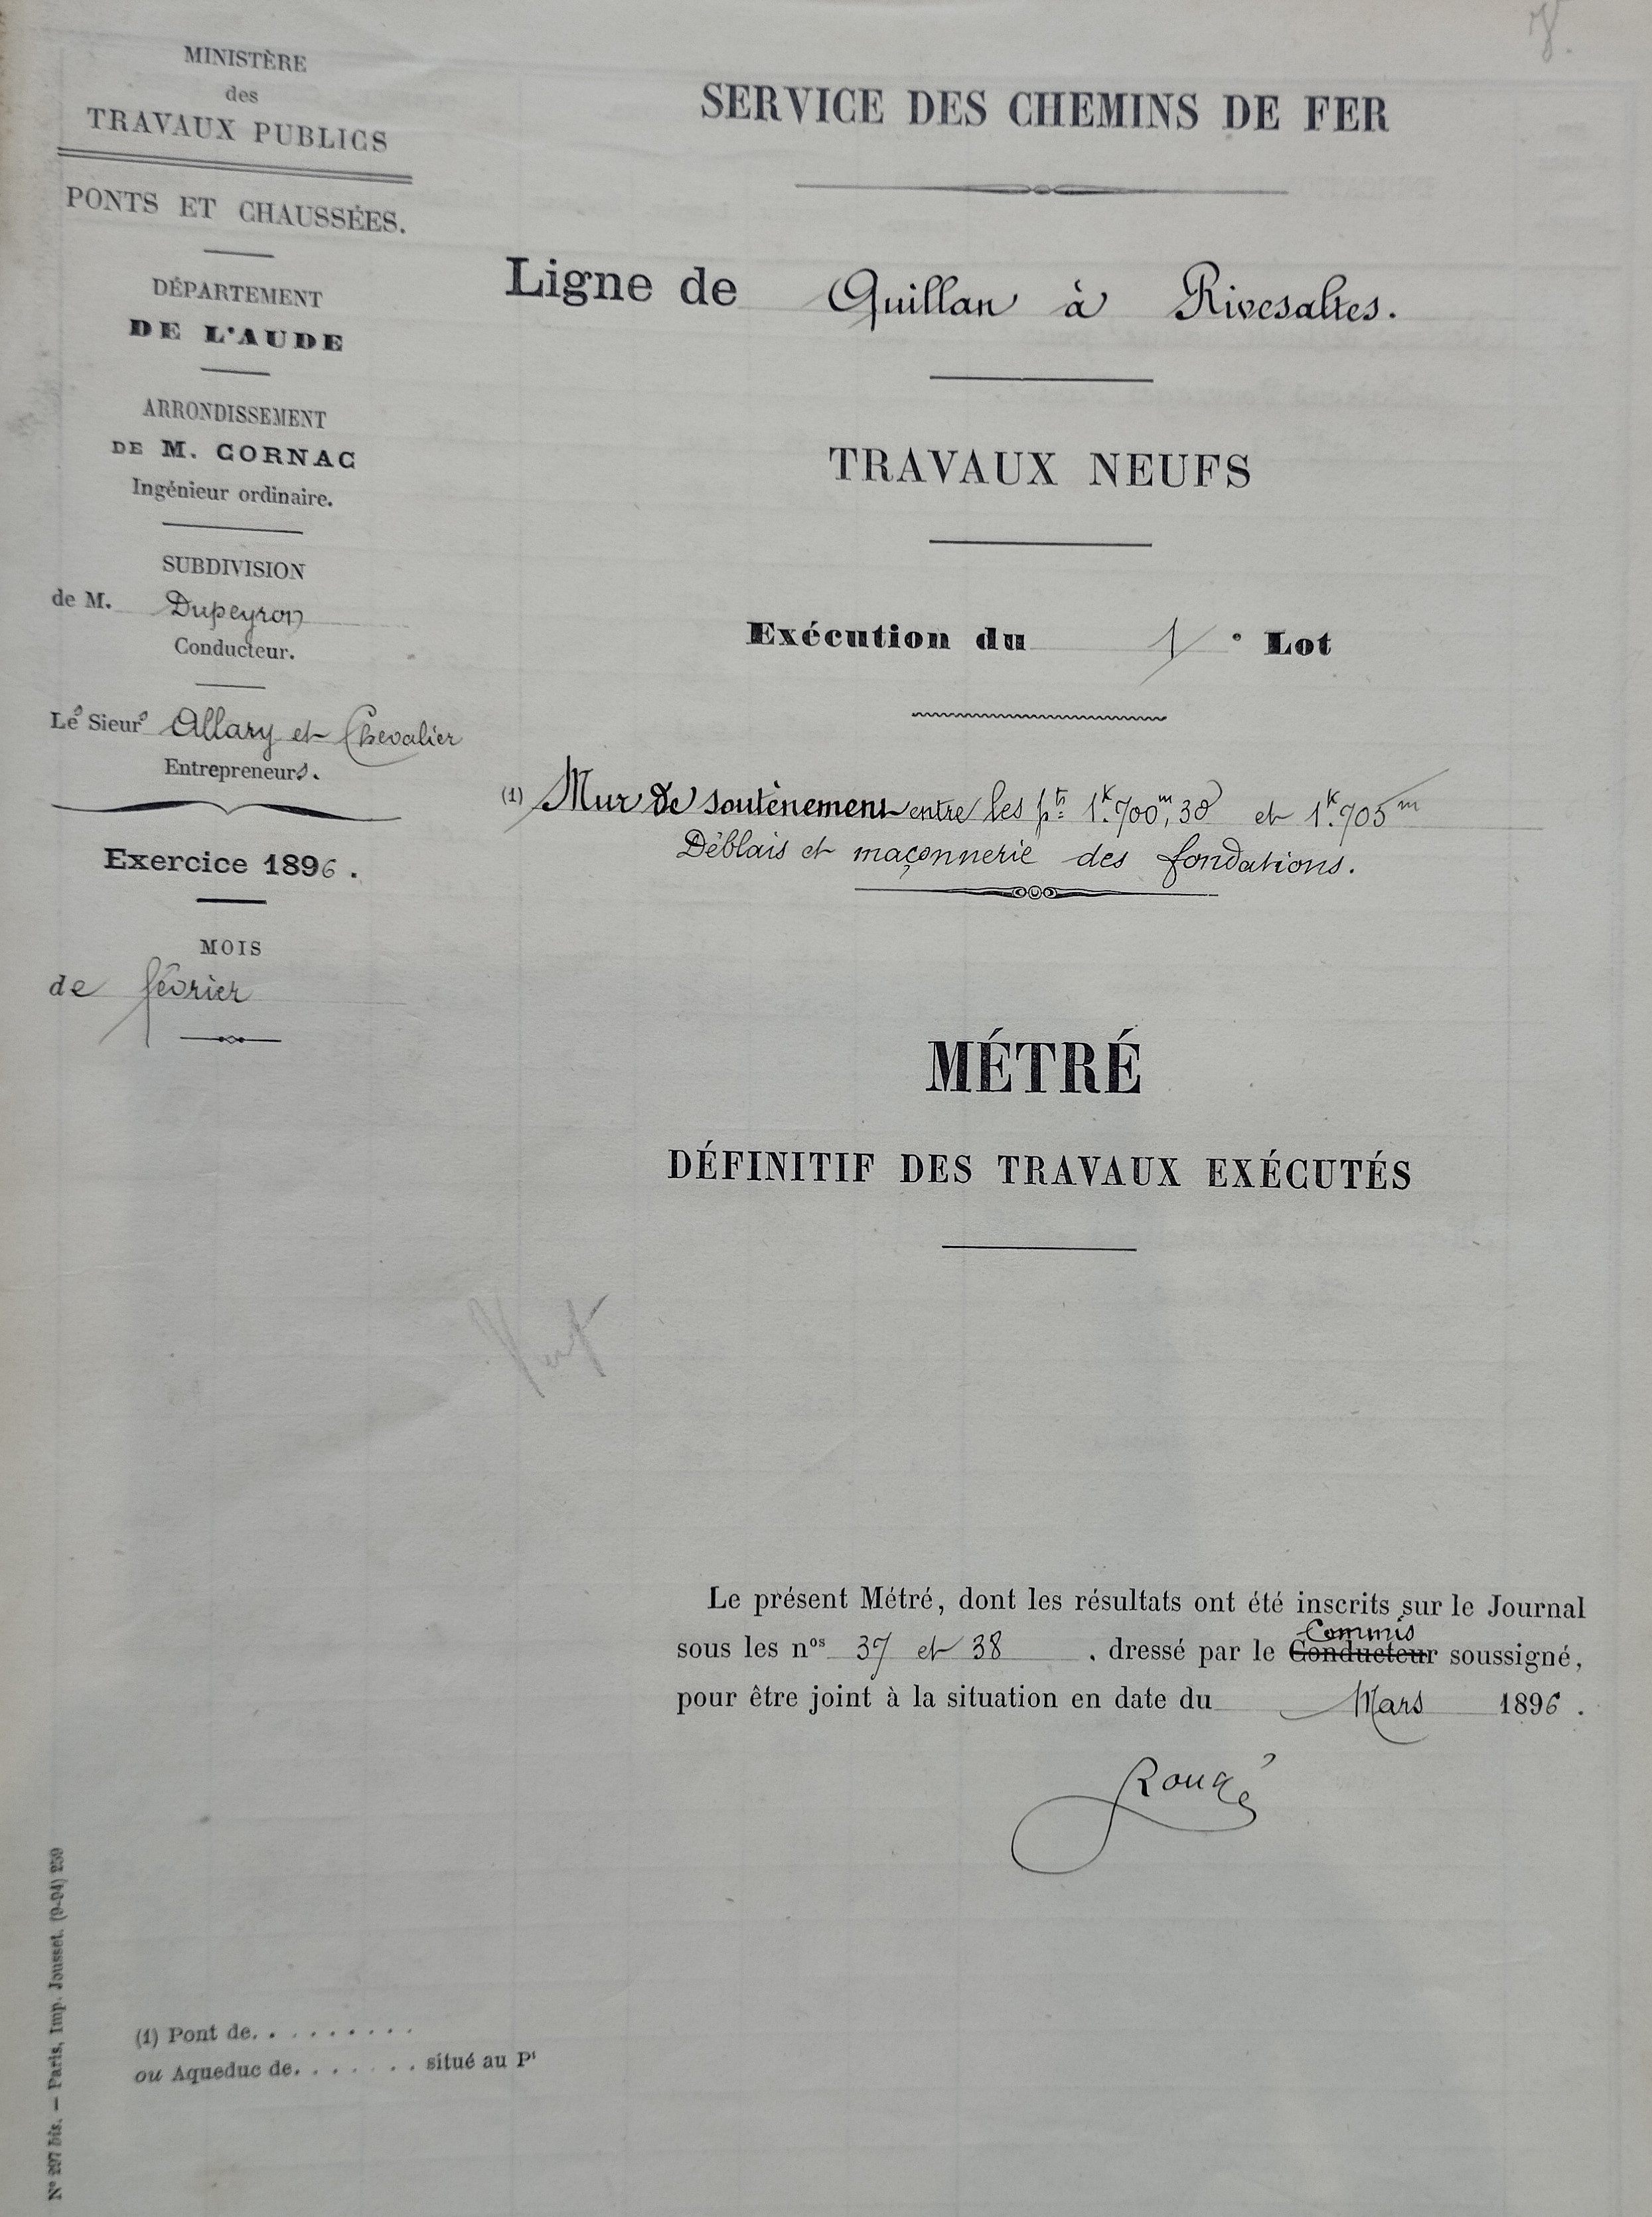 MINISTÈRE
des
TRAVAUX PUBLICS
PONTS ET CHAUSSÉES.
DÉPARTEMENT
DE L'AUDE
ARRONDISSEMENT
DE M. CORNAC
Ingénieur ordinaire.
SUBDIVISION
de M. Dupeyron
Conducteur.
Les Sieurs Allary et Chevalier
Entrepreneurs.
Exercice 1896.
MOIS
de février
SERVICE DES CHEMINS DE FER
Ligne de Quillan à Rivesaltes.
TRAVAUX NEUFS
Exécution du 1e Lot
(1) Mur de soutènement entre les pts 1k.700m,38 et 1k.705m
Déblais et maçonnerie des fondations.
MÉTRÉ
DÉFINITIF DES TRAVAUX EXÉCUTÉS
Le présent Métré, dont les résultats ont été inscrits sur le Journal
Commis
sous les nos 37 et 38. dressé par le Conducteur soussigné,
pour être joint à la situation en date du Mars 1896.
(1) Pont de. . . . . . . . .
ou Aqueduc de. . . . . . . situé au Pt
N° 297 bis. — Paris, Imp. Jousset. (9-94) 259